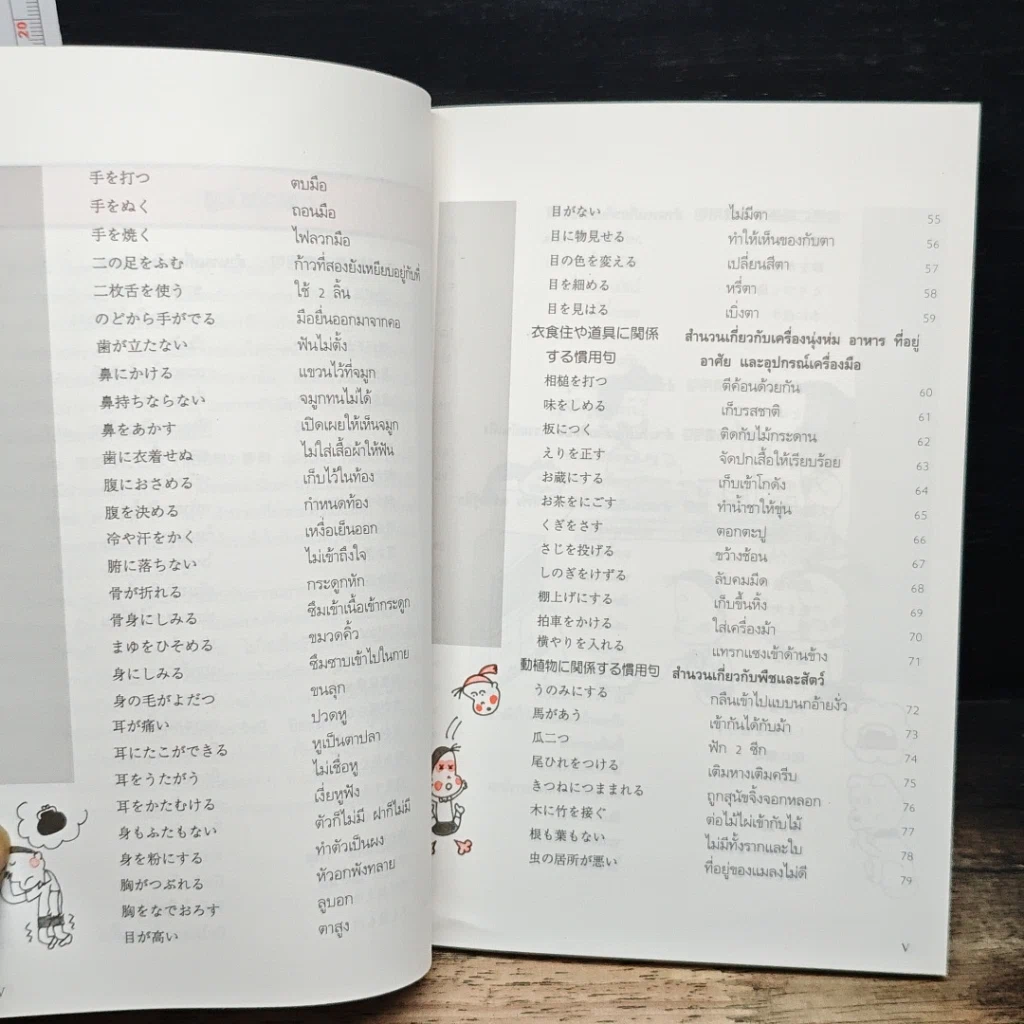 20
手を打つ ตบมือ
手をぬく ถอนมือ
手を焼く ไฟลวกมือ
二の足をふむ ก้าวที่สองยังเหยียบอยู่กับที่
二枚舌を使う ใช้ 2 ลิ้น
のどから手がでる มือยื่นออกมาจากคอ
歯が立たない ฟันไม่ตั้ง
鼻にかける แขวนไว้ที่จมูก
鼻持ちならない จมูกทนไม่ได้
鼻をあかす เปิดเผยให้เห็นจมูก
歯に衣着せぬ ไม่ใส่เสื้อผ้าให้ฟัน
腹におさめる เก็บไว้ในท้อง
腹を決める กำหนดท้อง
冷や汗をかく เหงื่อเย็นออก
腑に落ちない ไม่เข้าถึงใจ
骨が折れる กระดูกหัก
骨身にしみる ซึมเข้าเนื้อเข้ากระดูก
まゆをひそめる ขมวดคิ้ว
身にしみる ซึมซาบเข้าไปในกาย
身の毛がよだつ ขนลุก
耳が痛い ปวดหู
耳にたこができる หูเป็นตาปลา
耳をうたがう ไม่เชื่อหู
耳をかたむける เงี่ยหูฟัง
身もふたもない ตัวก็ไม่มี ฝาก็ไม่มี
身を粉にする ทำตัวเป็นผง
胸がつぶれる หัวอกพังทลาย
胸をなでおろす ลูบอก
目が高い ตาสูง
目がない ไม่มีตา 55
目に物見せる ทำให้เห็นของกับตา 56
目の色を変える เปลี่ยนสีตา 57
目を細める หรี่ตา 58
目を見はる เบิ่งตา 59
衣食住や道具に関係 สำนวนเกี่ยวกับเครื่องนุ่งห่ม อาหาร ที่อยู่
する慣用句 อาศัย และอุปกรณ์เครื่องมือ
相槌を打つ ตีค้อนด้วยกัน 60
味をしめる เก็บรสชาติ 61
板につく ติดกับไม้กระดาน 62
えりを正す จัดปกเสื้อให้เรียบร้อย 63
お蔵にする เก็บเข้าโกดัง 64
お茶をにごす ทำน้ำชาให้ขุ่น 65
くぎをさす ตอกตะปู 66
さじを投げる ขว้างช้อน 67
しのぎをけずる ลับคมมีด 68
棚上げにする เก็บขึ้นหิ้ง 69
拍車をかける ใส่เครื่องม้า 70
横やりを入れる แทรกแซงเข้าด้านข้าง 71
動植物に関係する慣用句 สำนวนเกี่ยวกับพืชและสัตว์
うのみにする กลืนเข้าไปแบบนกอ้ายงั่ว 72
馬があう เข้ากันได้กับม้า 73
瓜二つ ฟัก 2 ซีก 74
尾ひれをつける เติมหางเติมครีบ 75
きつねにつままれる ถูกสุนัขจิ้งจอกหลอก 76
木に竹を接ぐ ต่อไม้ไผ่เข้ากับไม้ 77
根も葉もない ไม่มีทั้งรากและใบ 78
虫の居所が悪い ที่อยู่ของแมลงไม่ดี 79
V